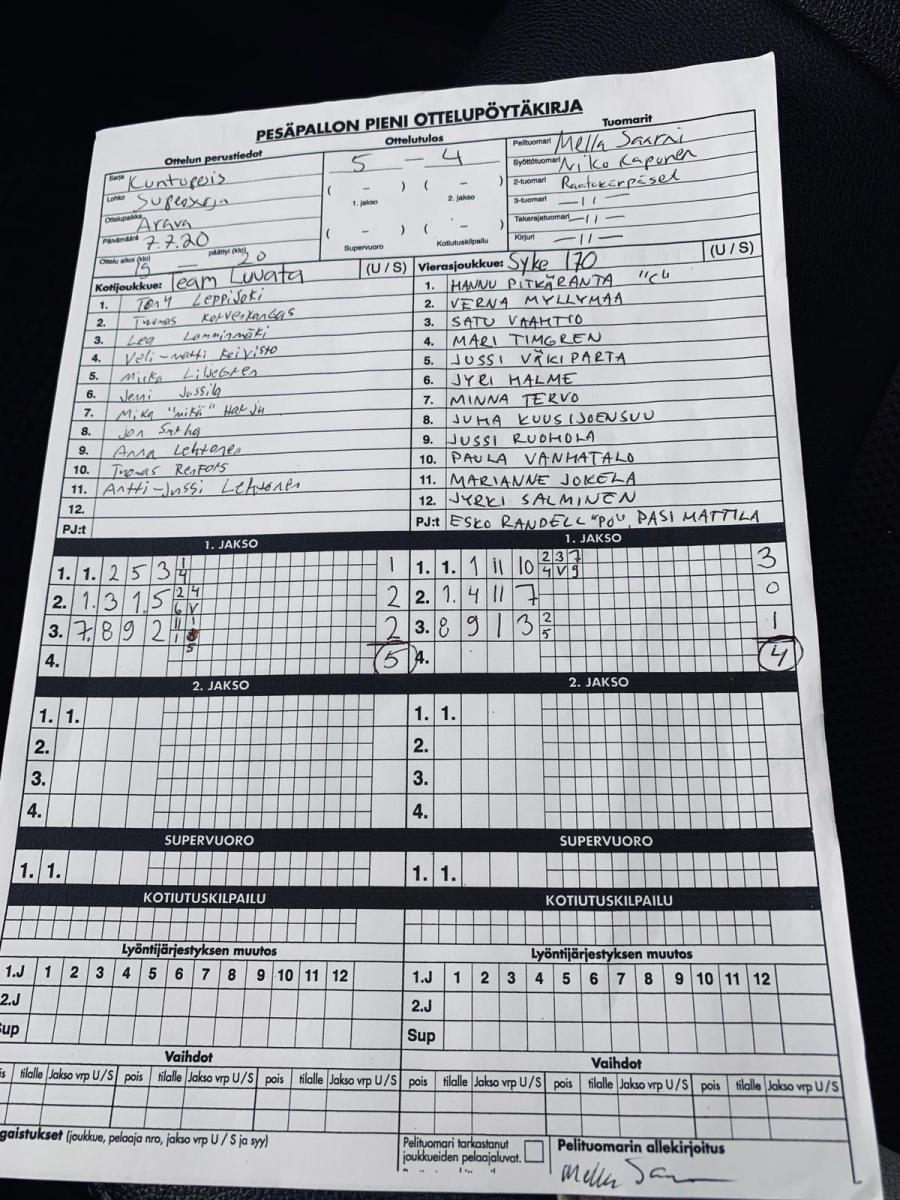 PESÄPALLON PIENI OTTELUPÖYTÄKIRJA
Ottelun perustiedot
Ottelutulos
Tuomarit
Sarja Kuntopesis
Lohko
Ottelupaikka Arava
Päivämäärä 7.7.20
Ottelu alkoi (klo) 19 — päättyi (klo) 20
5 — 4
( – ) ( – )
1. jakso 2. jakso
( – ) ( – )
Supervuoro Kotiutuskilpailu
Pelituomari Mella Saarni
Syöttötuomari Niko Kaponen
2-tuomari
3-tuomari —11—
Takarajatuomari —11—
Kirjuri —11—
Kotijoukkue: Team Luvata (U / S)
1. Tony Leppijoki
2. Tuomas Korveskangas
3. Lea Lamminmäki
4. Veli-matti Koivisto
5. Miika Liljegren
6. Jeni Jussila
7. Mika "mikä" Harju
8. Jon
9. Anna Lehtonen
10. Tuomas Renfors
11. Antti-Jussi Lehtonen
12.
PJ:t
Vierasjoukkue: Syke 170 (U / S)
1. HANNU PITKÄRANTA "C"
2. VERNA MYLLYMAA
3. SATU VAAHTIO
4. MARI TIMGREN
5. JUSSI VÄKIPARTA
6. JYRI HALME
7. MINNA TERVO
8. JUHA KUUSIJOENSUU
9. JUSSI RUOHOLA
10. PAULA VANHATALO
11. MARIANNE JOKELA
12. JYRKI SALMINEN
PJ:t ESKO RANDELL "PO", PASI MATTILA
1. JAKSO
1. 1. 2 5 3 1 4 1
2. 1. 3 1. 5 2 4 6 V 2
3. 7. 8 9 2 11 1 1 5 2
4. 5
1. JAKSO
1. 1. 1 11 10 2 3 7 4 V 9 3
2. 1. 4 11 7 0
3. 8 9 1 3 2 5 1
4. 4
2. JAKSO
1. 1.
2.
3.
4.
2. JAKSO
1. 1.
2.
3.
4.
SUPERVUORO
1. 1.
SUPERVUORO
1. 1.
KOTIUTUSKILPAILU
KOTIUTUSKILPAILU
Lyöntijärjestyksen muutos
1.J 1 2 3 4 5 6 7 8 9 10 11 12
2.J
Sup
Lyöntijärjestyksen muutos
1.J 1 2 3 4 5 6 7 8 9 10 11 12
2.J
Sup
Vaihdot
is tilalle Jakso vrp U/S pois tilalle Jakso vrp U/S pois tilalle Jakso vrp U/S
Vaihdot
pois tilalle Jakso vrp U/S pois tilalle Jakso vrp U/S pois tilalle Jakso vrp U/S
gaistukset (joukkue, pelaaja nro, jakso vrp U / S ja syy)
Pelituomari tarkastanut
joukkueiden pelaajaluvat.
Pelituomarin allekirjoitus
Mella